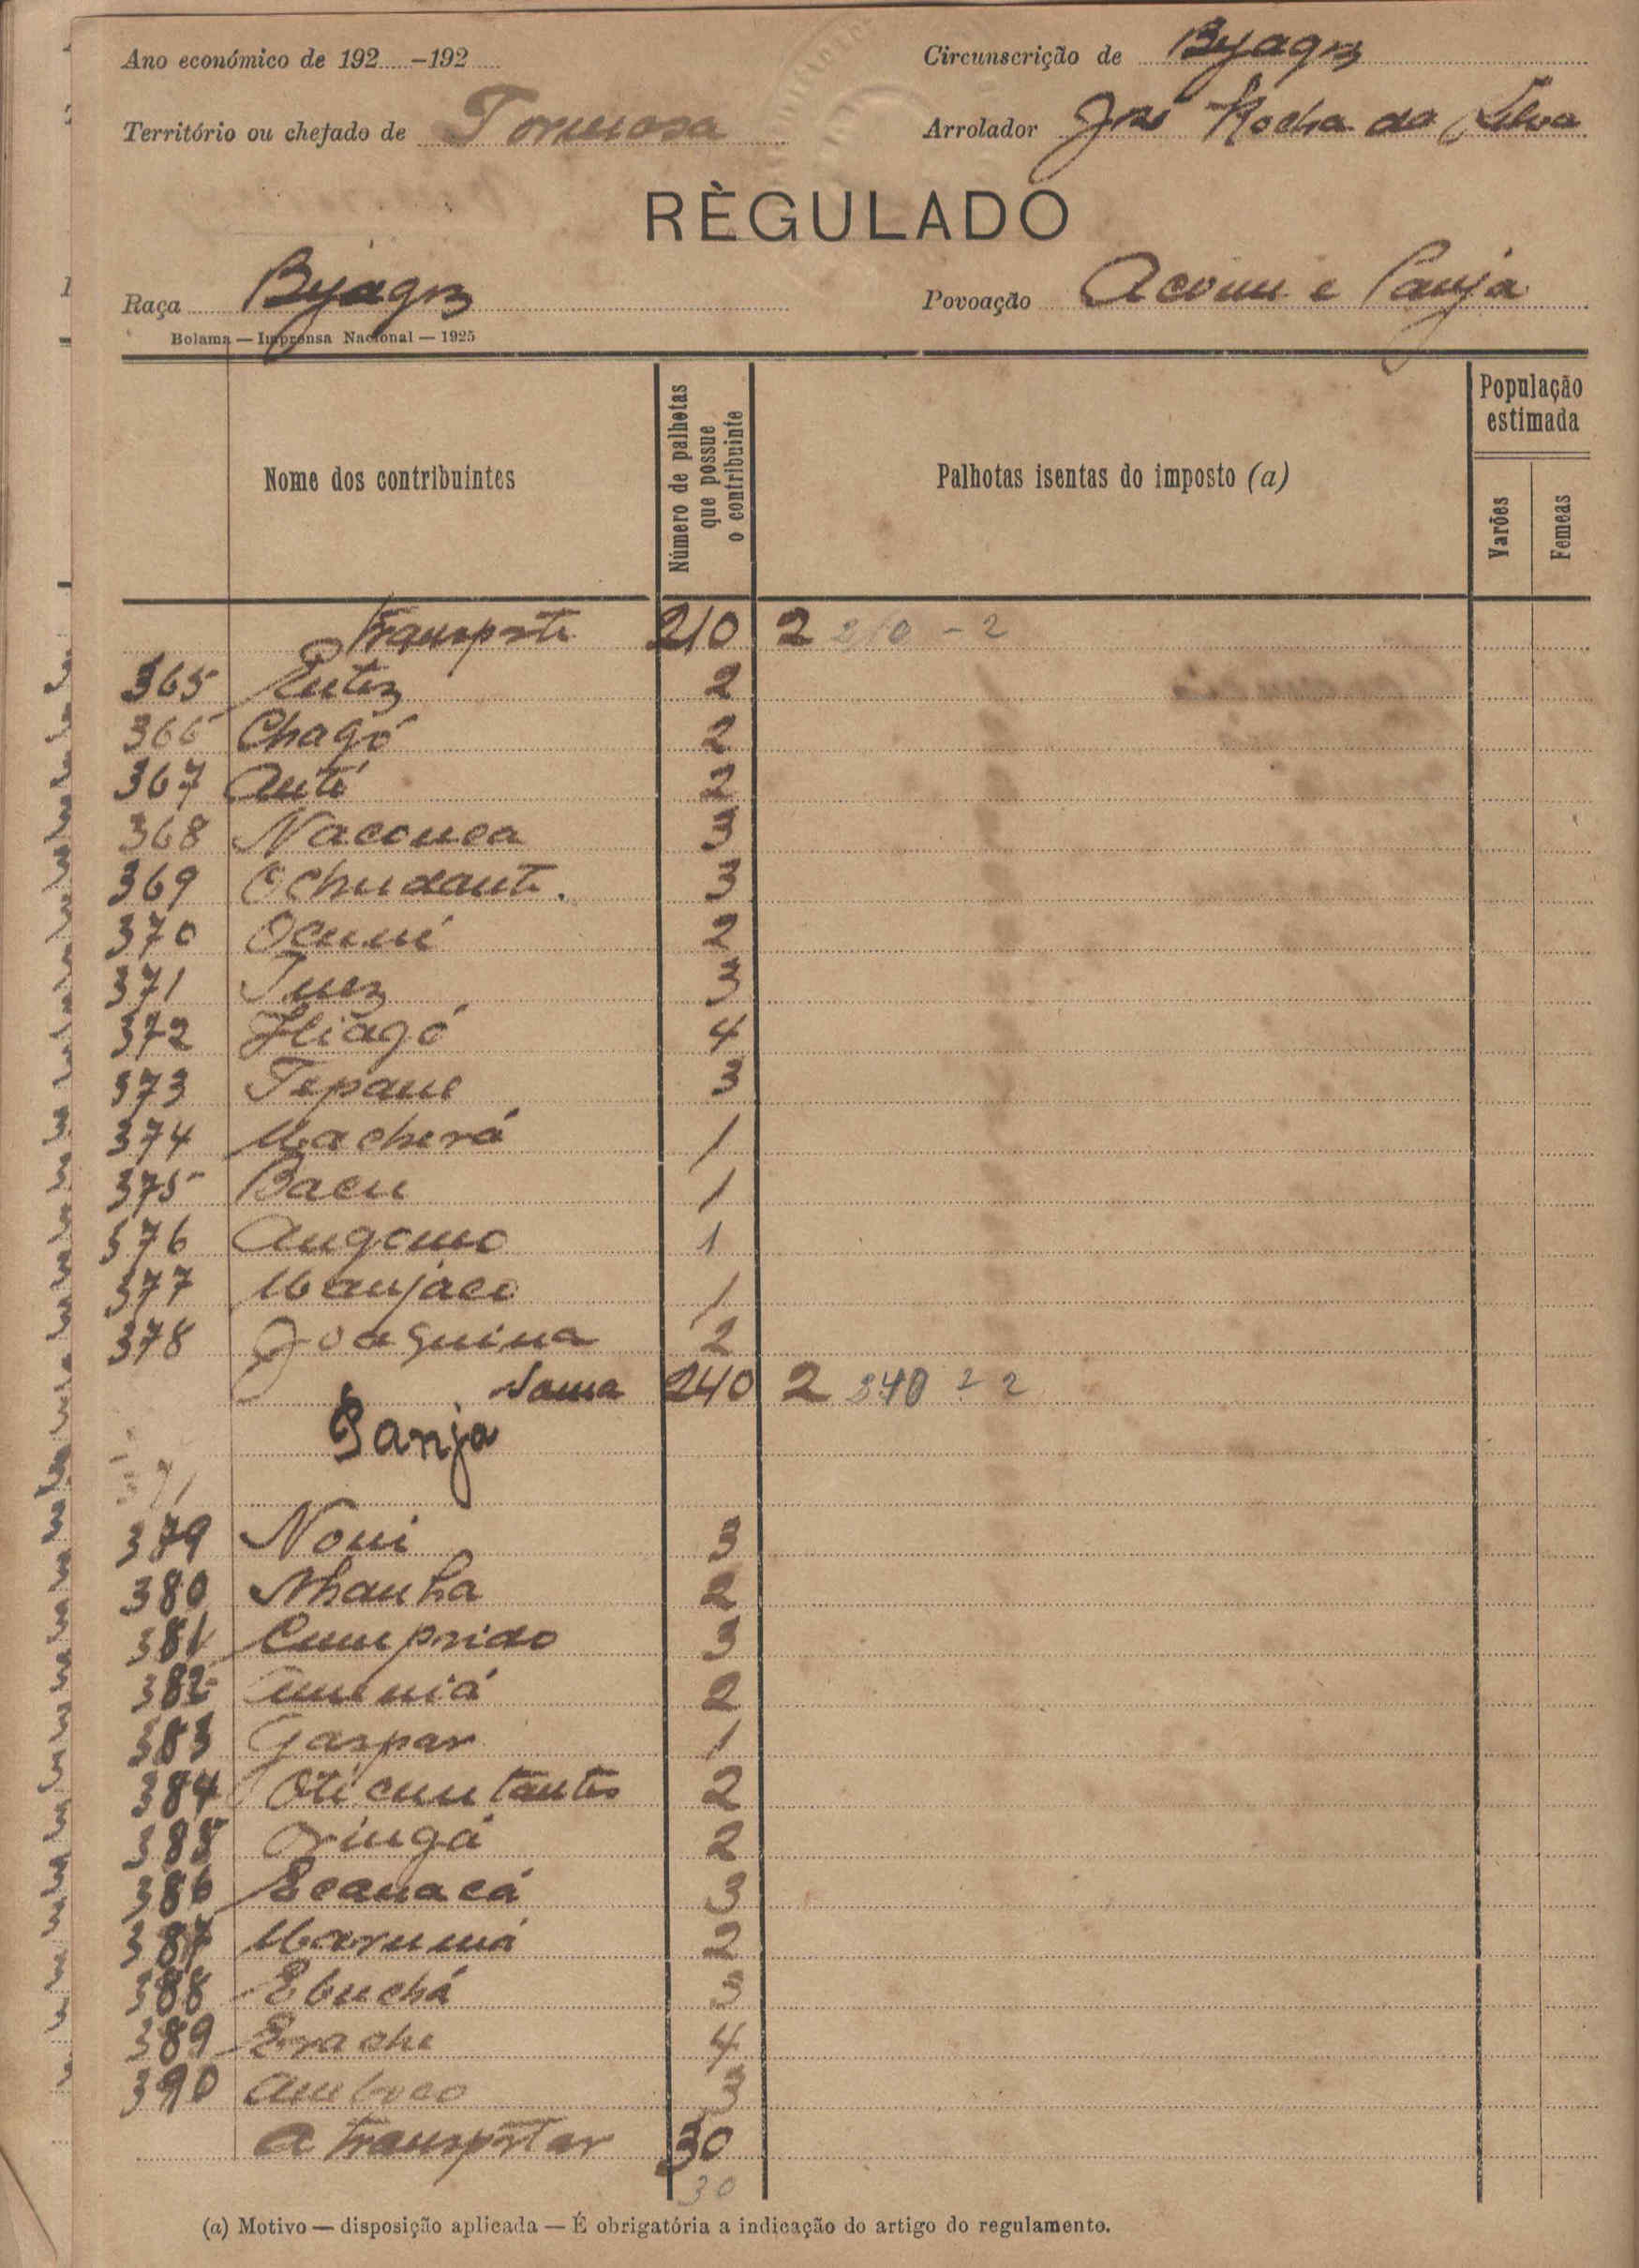 Ano económico de 192......-192......
Circunscrição de Byagoz
Território ou chefado de Formosa
Arrolador José Rocha da Silva
RÈGULADO
Raça Byagoz
Povoação Acomi e Panja
Bolama — Imprensa Nacional — 1925
Nome dos contribuintes
Número de palhotas que possue o contribuinte
Palhotas isentas do imposto (a)
População estimada
Varões
Femeas
Transporte 210 2 210 - 2
365 2
366 Chagó 2
367 Anté 2
368 Naconca 3
369 Ochudante. 3
370 2
371 Inez 3
372 4
373 Tepane 3
374 Macherá 1
375 Bacu 1
376 Angomo 1
377 Manjaco 1
378 Joaquina 2
Soma 240 2 240 - 2
Panja
371
379 Noni 3
380 Nhanha 2
381 Cumprido 3
382 2
383 Gaspar 1
384 2
385 Oringá 2
386 Ecanacá 3
387 2
388 Ebuchá 3
389 Erache 4
390 3
A transportar 30
30
(a) Motivo — disposição aplicada — É obrigatória a indicação do artigo do regulamento.